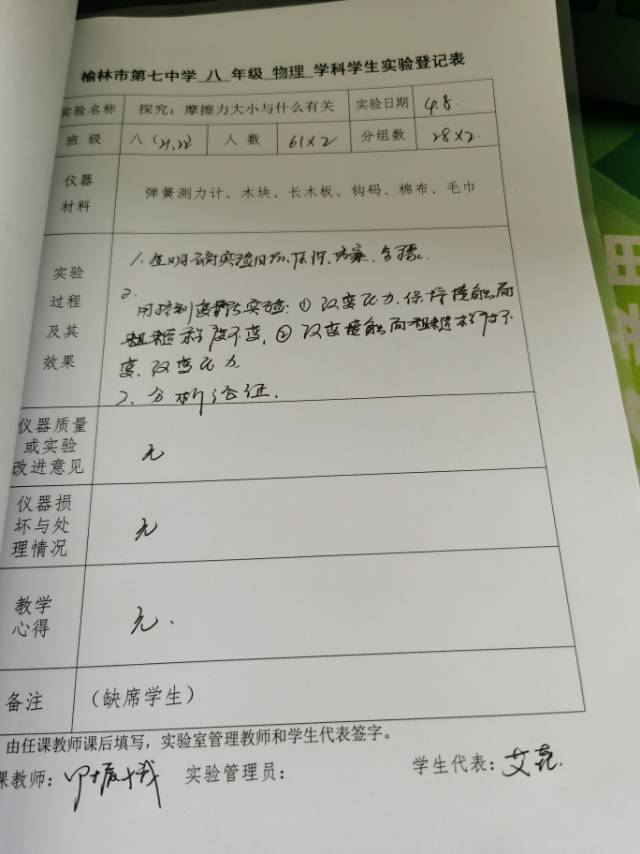 榆林市第七中学 八 年级 物理 学科学生实验登记表
实验名称 探究:摩擦力大小与什么有关 实验日期 4.8.
班 级 八(21,22) 人 数 61×2 分组数 28×2.
仪器
材料
弹簧测力计、木块、长木板、钩码、棉布、毛巾
实验
过程
及其
效果
1.
2.
用控制变量法实验:①改变压力.保持接触面
粗糙程度不变,②改变接触面粗糙程度不
变.改变压力
2、分析论证.
仪器质量
或实验
改进意见
无
仪器损
坏与处
理情况
无
教学
心得
无.
备注 (缺席学生)
由任课教师课后填写,实验室管理教师和学生代表签字。
课教师: 实验管理员: 学生代表:艾